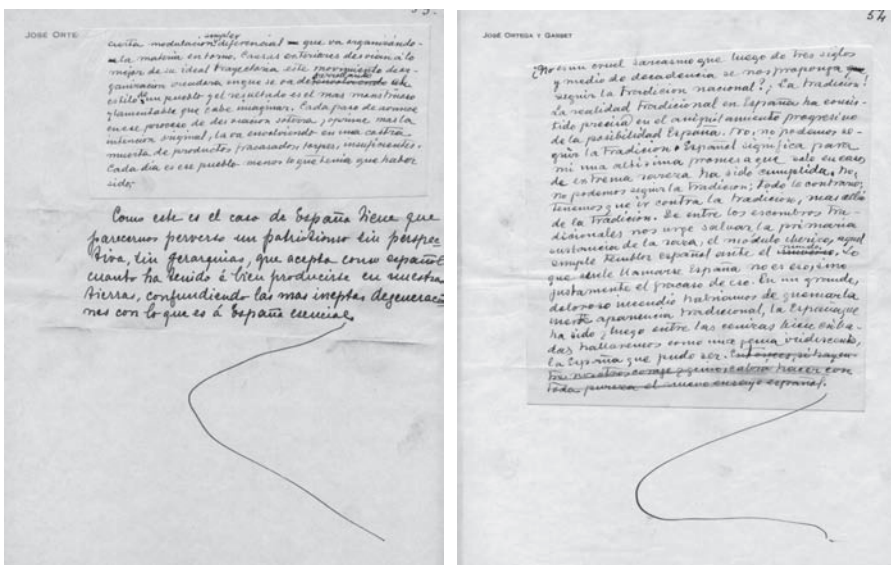 53.
JOSÉ ORTE
simplex
cierta modulación diferencial — que va organizándo-
la materia en torno. Fuerzas exteriores desvían a lo
mejor de su ideal trayectoria este movimiento de or-
perdiendo
ganización creadora en que se va el
estilo de un pueblo y el resultado es el más monstruoso
y lamentable que cabe imaginar. Cada paso de avance
en ese proceso de desviación soterra y oprime más la
intención original, la va envolviendo en una costra
muerta de productos fracasados, torpes, insuficientes.
Cada día es ese pueblo menos lo que tenía que haber
sido.
Como este es el caso de España tiene que
parecernos perverso un patriotismo sin perspec-
tiva, sin gerarquías, que acepta como español
cuanto ha tenido á bien producirse en nuestras
tierras, confundiendo las mas ineptas degeneracio-
nes con lo que es á España esencial.
54
JOSÉ ORTEGA Y GASSET
¿No es un cruel sarcasmo que luego de tres siglos
y medio de decadencia se nos proponga
seguir la tradición nacional? ¡La tradición!
La realidad tradicional en España ha consis-
tido precisa/ en el aniquilamiento progresivo
de la posibilidad España. No, no podemos se-
guir la tradición. Español significa para
mi una altísima promesa que solo en casos
de extrema rareza ha sido cumplida. No,
no podemos seguir la tradición; todo lo contrario;
tenemos que ir contra la tradición, mas allá
de la tradición. De entre los escombros tra-
dicionales nos urge salvar la primaria
sustancia de la raza, el módulo iberico, aquel
mundo
simple temblor español ante el Lo
que suele llamarse España no es eso, sino
justamente el fracaso de eso. En un grande,
doloroso incendio habríamos de quemar la
inerte apariencia tradicional, la España que
ha sido, luego entre las cenizas bien criba-
das hallaremos como una gema iridiscente,
la España que pudo ser. Entonces, si hay en-
tre nosotros coraje y genio, cabrá hacer con
toda pureza el nuevo ensayo español.